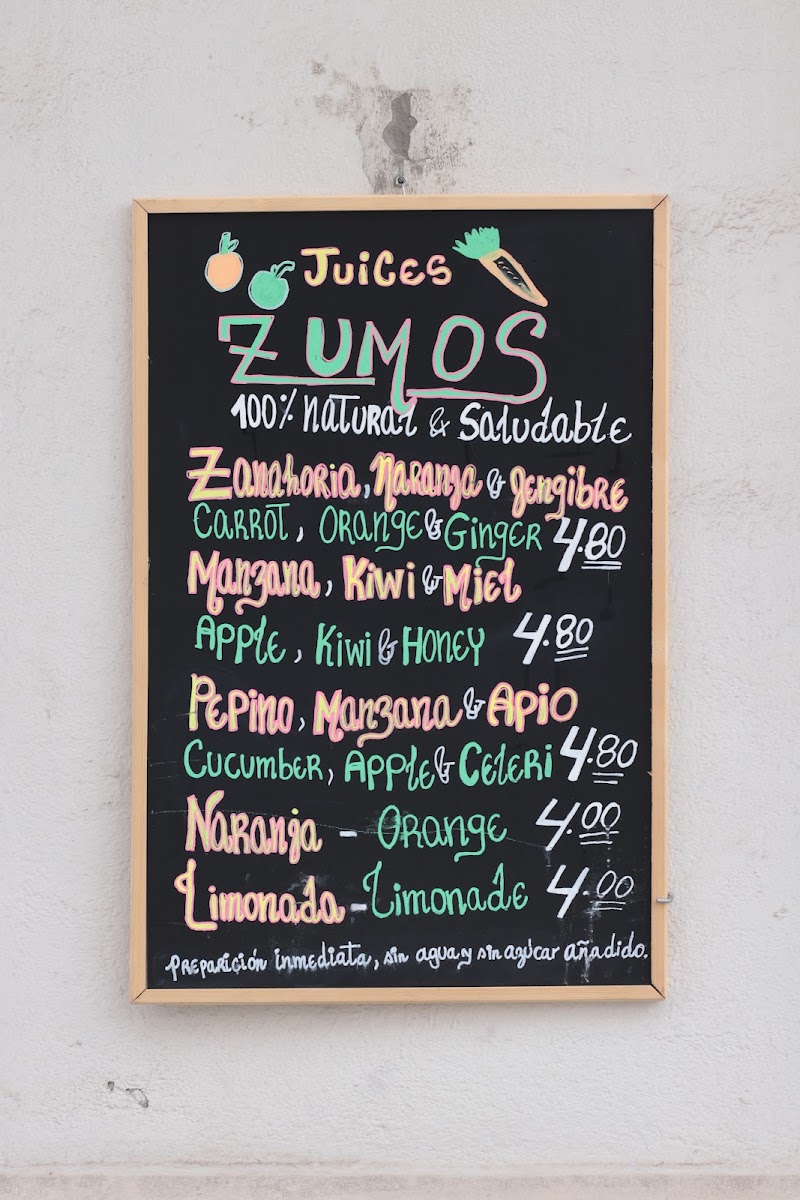 Juices
ZUMOS
100% Natural & Saludable
Zanahoria, Naranja & Jengibre
Carrot, Orange & Ginger 4.80
Manzana, Kiwi & Miel
Apple, Kiwi & Honey 4.80
Pepino, Manzana & Apio
Cucumber, Apple & Celeri 4.80
Naranja - Orange 4.00
Limonada - Limonade 4.00
Preparición inmediata, sin agua y sin azúcar añadido.